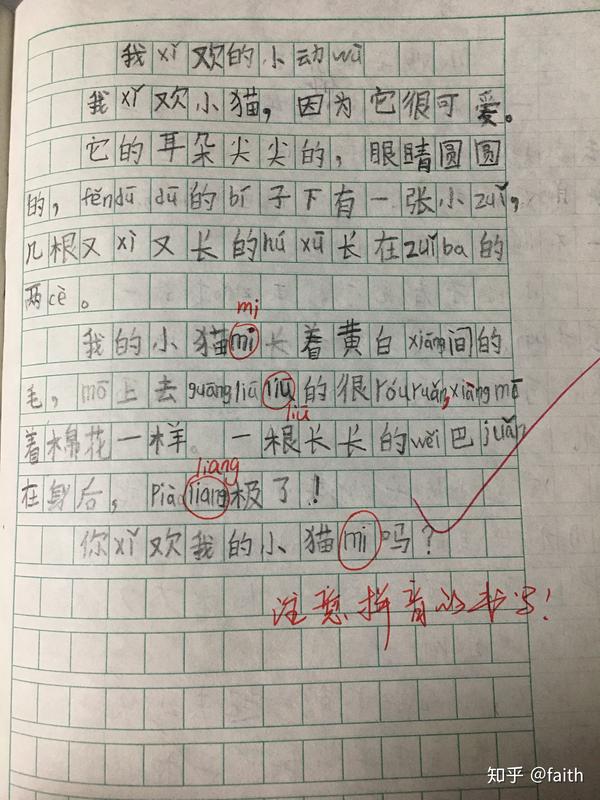 我xǐ欢的小动wù
我xǐ欢小猫，因为它很可爱。
它的耳朵尖尖的，眼睛圆圆
的，fěndū dū的bí子下有一张小zuǐ，
几根又xì又长的hú xū长在zuǐba的
两cè。
mi
我的小猫mi长着黄白xiāng间的
毛，mō上去guāngliūliū的很róuruǎn，xiàng mō
liū
着棉花一样。一根长长的wěi巴juǎn
liang
在身后，piàoliang极了！
你xǐ欢我的小猫mi吗？
注意拼音的书写！
知乎 @faith